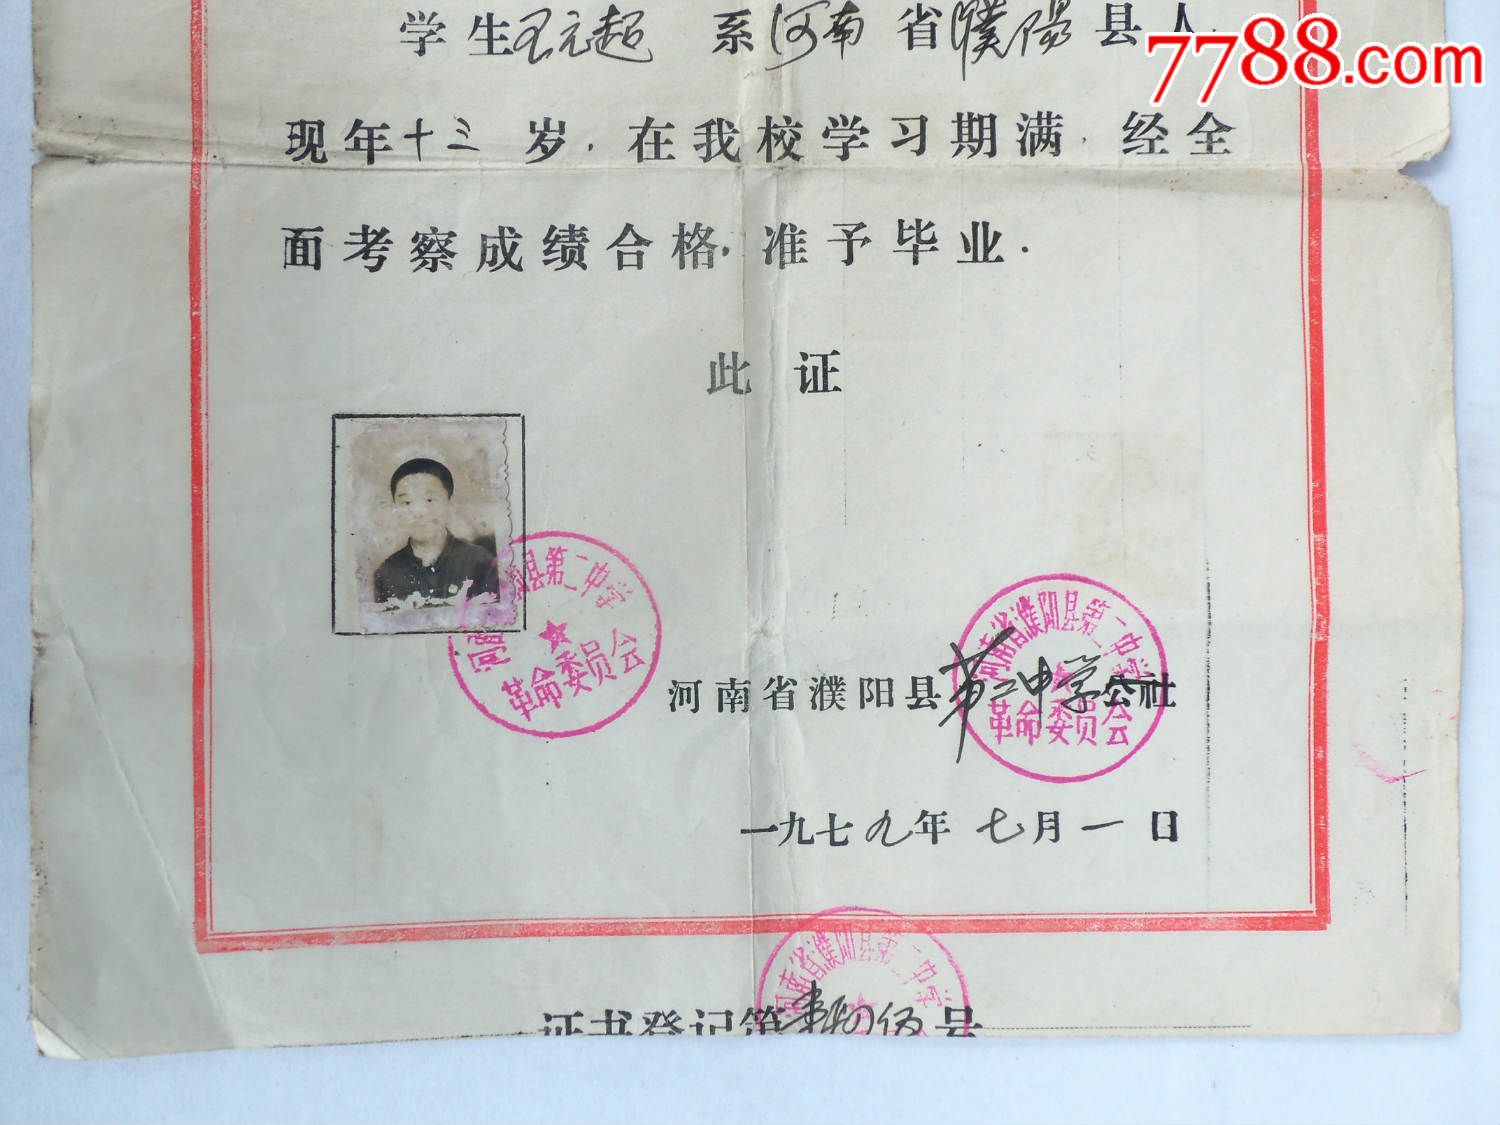 学生王元超 系河南省濮陽县人.
7788.com
现年十三岁.在我校学习期满.经全
面考察成绩合格.准予毕业.
此证
县第二中学
革命委员会
河南省濮阳县第二中学
革命委员会
河南省濮阳县第二中学公社
一九七九年七月一日
河南省濮阳县第二中学
证书登记第 号